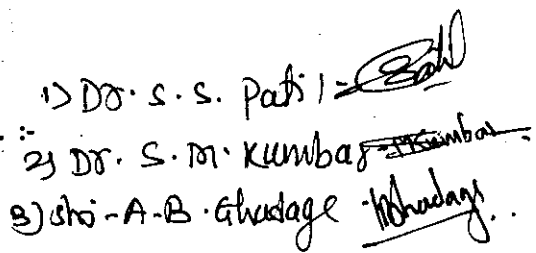 1) Dr. S. S. Patil -
:- 
2) Dr. S. M. Kumbar - Kumbar
3) Shri - A - B. Ghadage